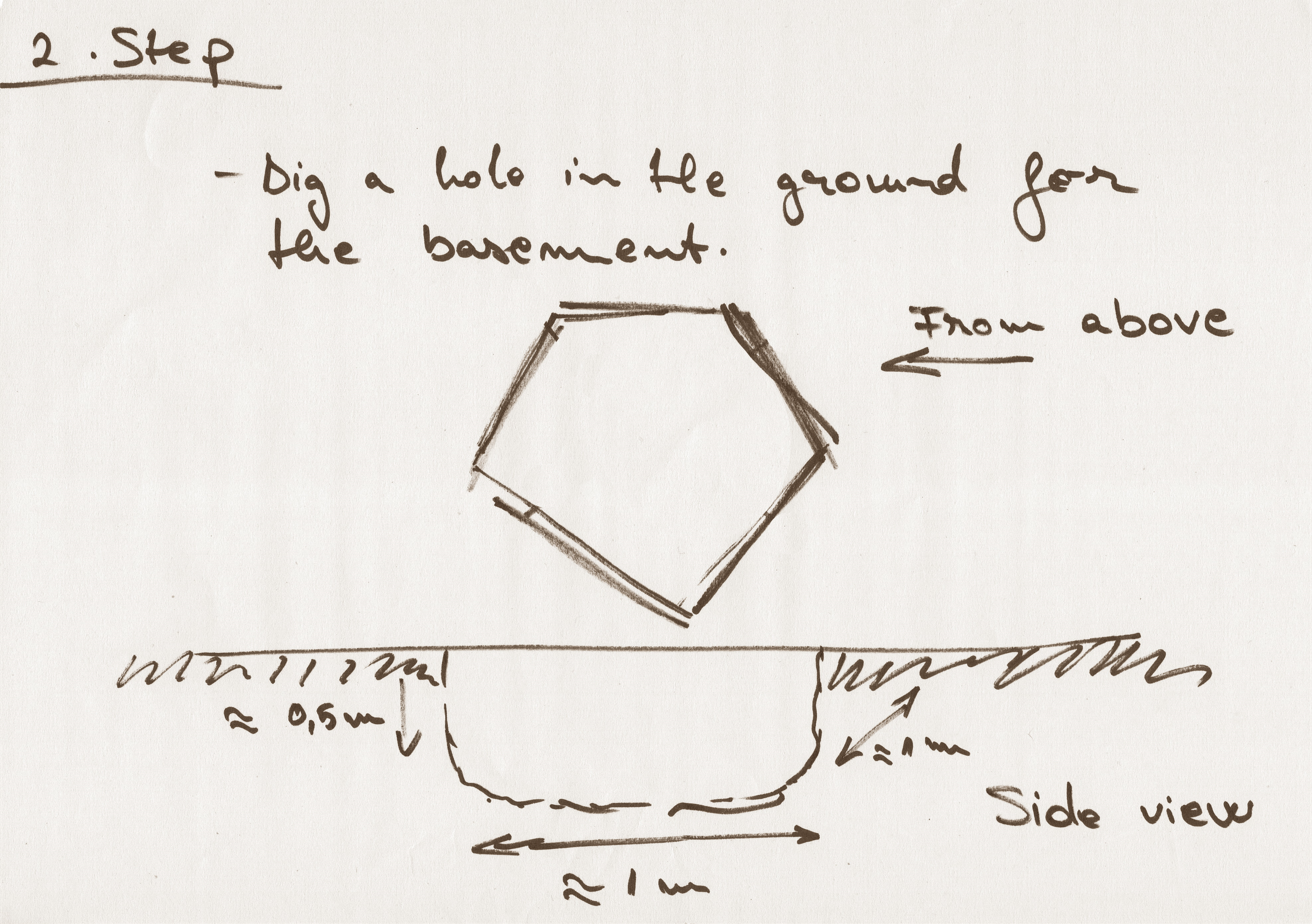 2. Step
- Dig a hole in the ground for
the basement.
From above
≈ 0,5m
≈ 1m
Side view
≈ 1m